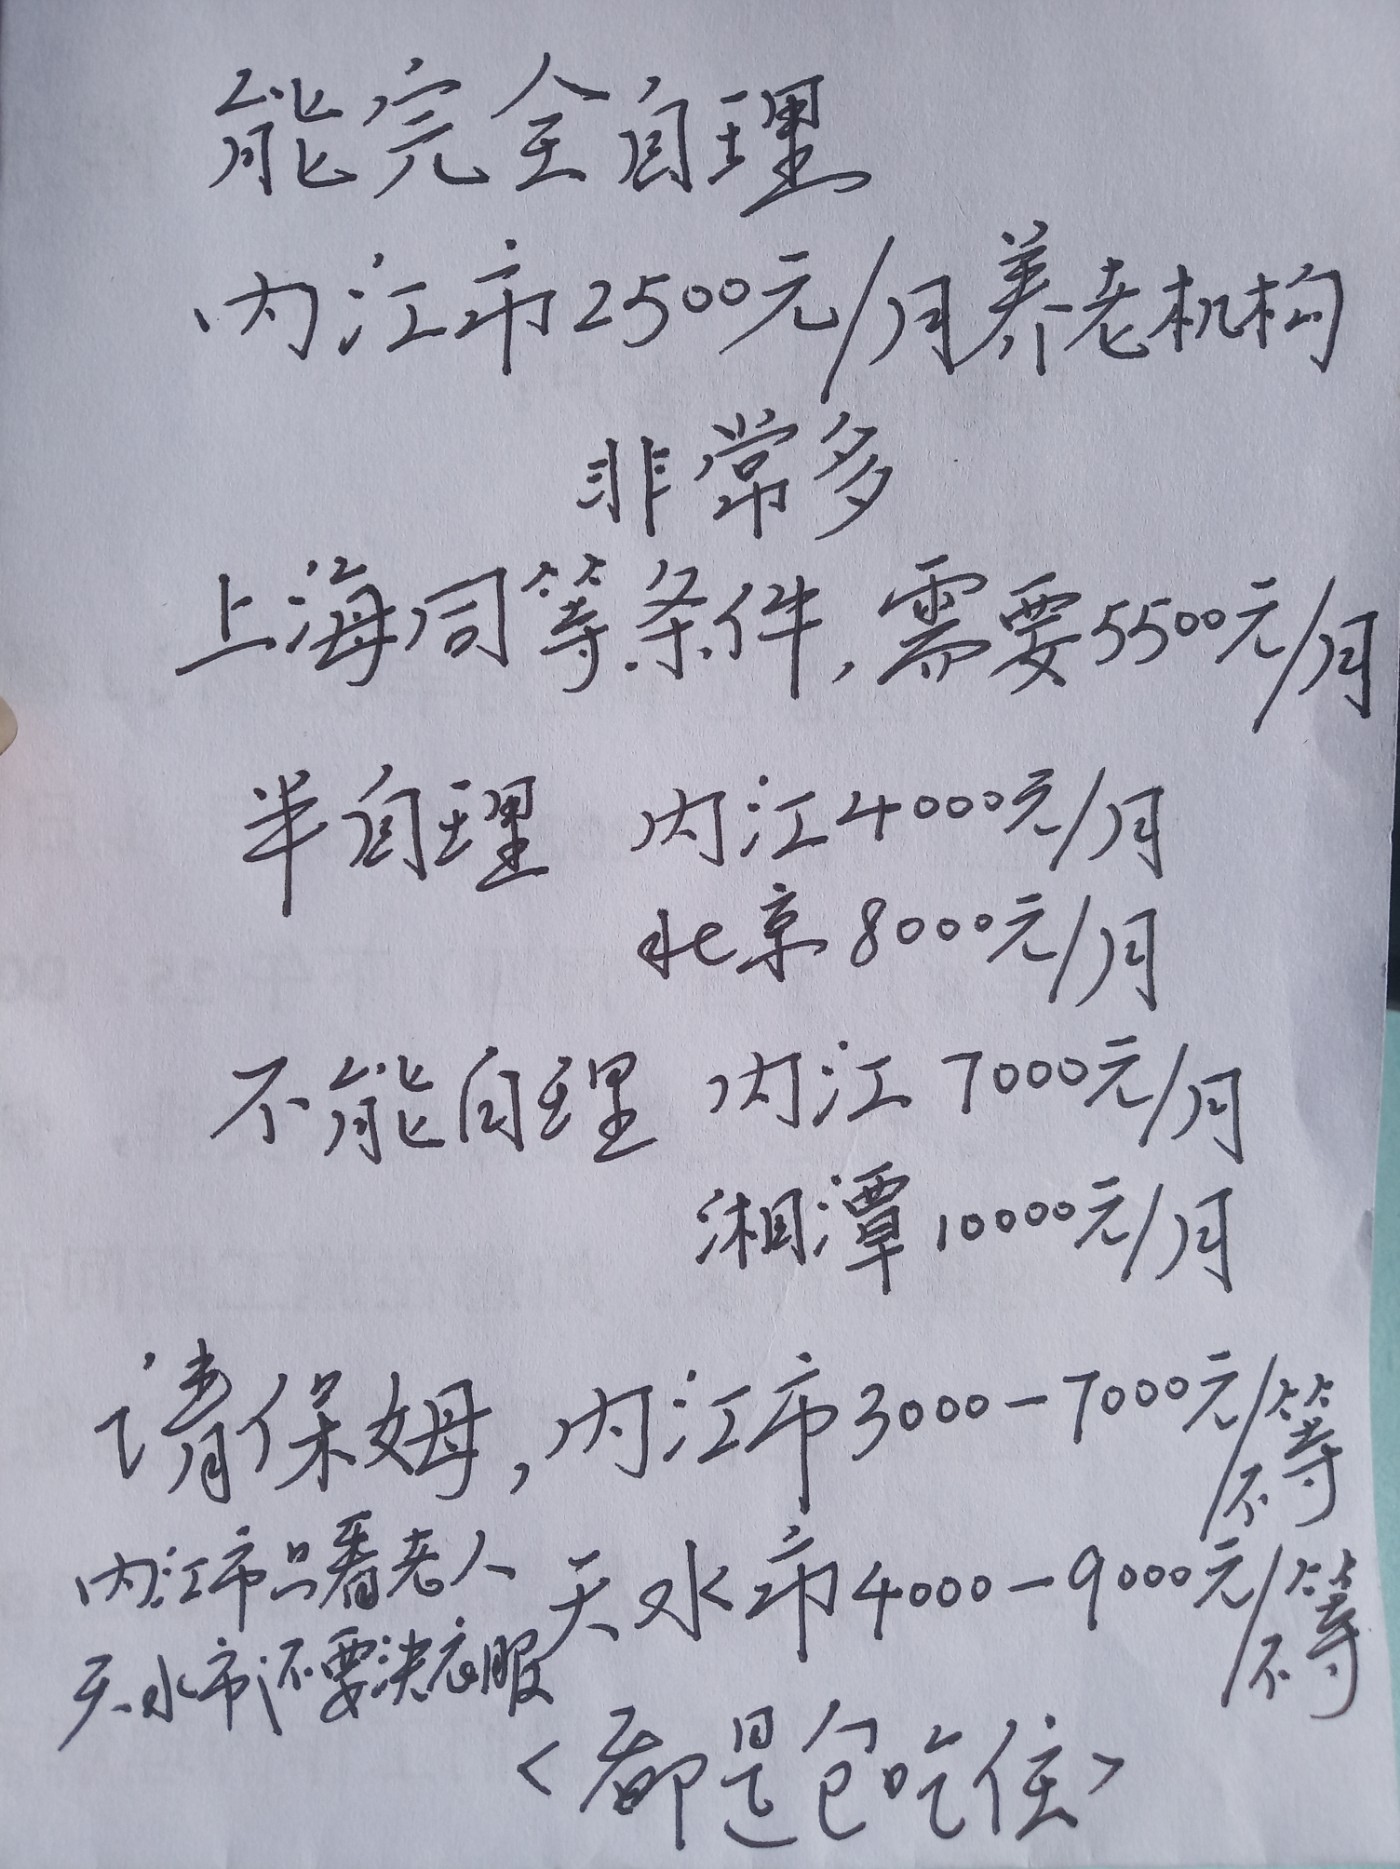 能完全自理
内江市2500元/月养老机构
非常多
上海同等条件,需要5500元/月
半自理 内江4000元/月
北京8000元/月
不能自理 内江7000元/月
湘潭10000元/月
请保姆,内江市3000-7000元/不等
天水市4000-9000元/不等
内江市只看老人
天水市还要洗衣服
<都是包吃住>